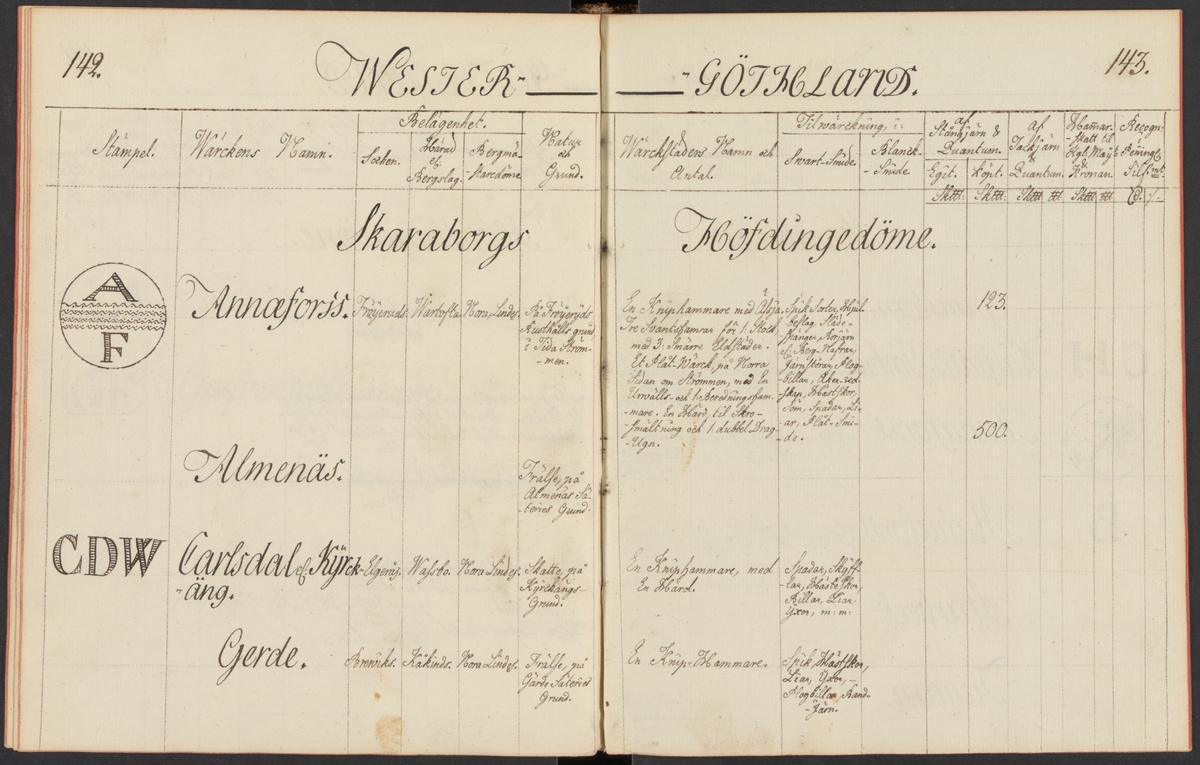 142.
WESTER-
-GÖTHLAND.
143.
Stämpel.
Wärckens Namn.
Belägenhet.
Socken.
Härad
Bergslag.
Bergmä-
staredöme
Natur
och
Grund.
Wärckstädens Namn och
Antal.
Tilwärckning, i:
Swart-Smide.
Blanck-
Smide.
af
Stångjärn &
Quantum.
Egit.
köpt.
Af
Tackjärn
Quantum.
Hamar-
skatt til
Kgl. Maj:t
Kronan.
Recogn:
Skaraborgs
Höfdingedöme.
A
F
Annæforss.
Fröjeruds.
Wartofta.
Nora, Lindes.
På Fröjeryds
Austhålls grund
i Tida Ström-
-men.
En Kniphammare med
Tre Svantshamrar för 1. Stock
med 3. Smärre Eldstäder.
Et Plåt-Wärck, på Norra
Sidan om Strömmen, med En
Urwälls- och 1. Beredningsham-
-mare. En Härd, til Skro-
-smältning och 1. dubbel Drag-
-Ugn.
Spik Sorter, Hjul-
beslag
Plog-
billar,
-skap, Hästskor,
Söm, Spadar, Li-
ar, Plåt-Smi-
-de.
123.
500.
Almenäs.
Frälse, på
Almenäs Sä-
-teries Grund.
CDW
Carlsdal &c Kÿrck-
-äng.
Elgerås.
Wassbo.
Nora Lindes.
Skatte, på
Kyrckängs
Grund.
En Kniphammare, med
En Härd.
Spadar, Skyff-
-lar, Hästeskor,
Billar, Liar,
Yxor, m: m:
Gerde.
Breviks.
Kåkinds.
Nora Lindes.
Frälse, på
Gärde Säteries
Grund.
En Knip-Hammare.
Spik, Hästskor,
Liar, Yxor, -
Plogbillar, Band-
-Järn.